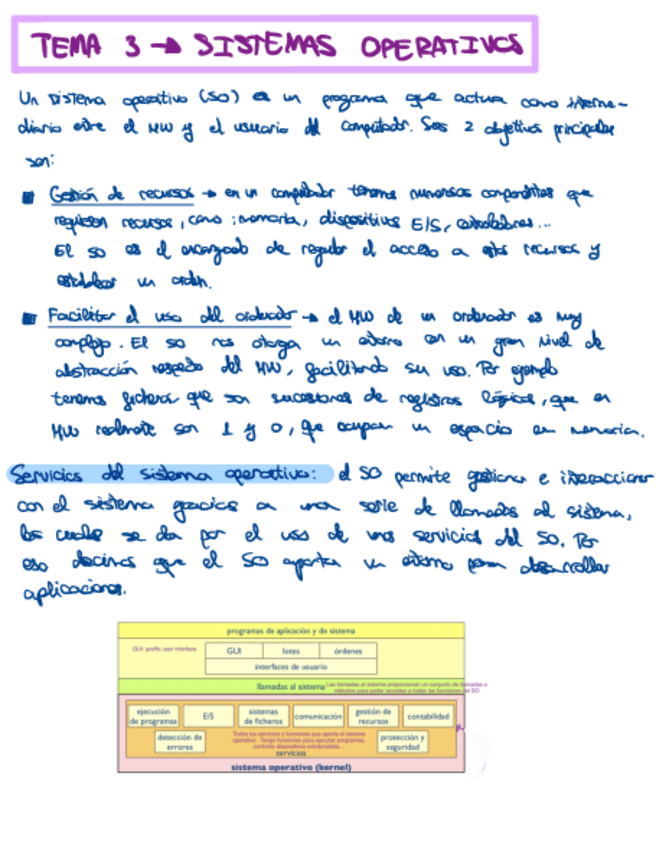 TEMA 3 → SISTEMAS OPERATIVOS
Un sistema operativo (SO) es un programa que actua como interme-
diario entre el HW y el usuario del computador. Sus 2 objetivos principales
son:
▪ Gestión de recursos → en un computador tenemos numerosos componentes que
requieren recursos, como: memoria, dispositivos E/S, controladores...
El SO es el encargado de regular el acceso a estos recursos y
establecer un orden.
▪ Facilitar el uso del ordenador → el HW de un ordenador es muy
complejo. El SO nos otorga un entorno con un gran nivel de
abstracción respecto del HW, facilitando su uso. Por ejemplo
tenemos ficheros que son sucesiones de registros lógicos, que en
HW realmente son 1 y 0, que ocupan un espacio en memoria.
Servicios del sistema operativo: el SO permite gestionar e interaccionar
con el sistema gracias a una serie de llamadas al sistema,
las cuales se dan por el uso de unos servicios del SO. Por
eso decimos que el SO aporta un entorno para desarrollar
aplicaciones.
programas de aplicación y de sistema
GUI: grafic user interface
GUI lotes órdenes
interfaces de usuario
llamadas al sistema
Las llamadas al sistema proporcionan un conjunto de llamadas o
métodos para poder acceder a todas las funciones del SO
ejecución de programas
E/S
sistemas de ficheros
comunicación
gestión de recursos
contabilidad
detección de errores
Todos los servicios o funciones que aporta el sistema
operativo. Tengo funciones para ejecutar programas,
controlar dispositivos
protección y seguridad
servicios
sistema operativo (kernel)